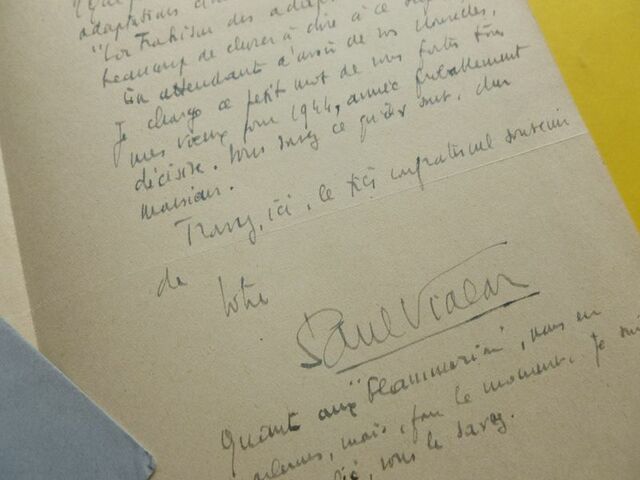 adaptations d'
"La Trahison des adap
beaucoup de choses à dire à ce su
En attendant d'avoir de vos nouvelles,
Je charge ce petit mot de vous porter tous
mes vœux pour 1944, année probablement
décisive. Vous savez ce qu'ils sont, cher
monsieur.
Trouvez, ici, le très confraternel souvenir
de Votre
Paul Vialar
Quant aux "Flammarion", nous en
mais, pour le moment. Je
vous le savez.